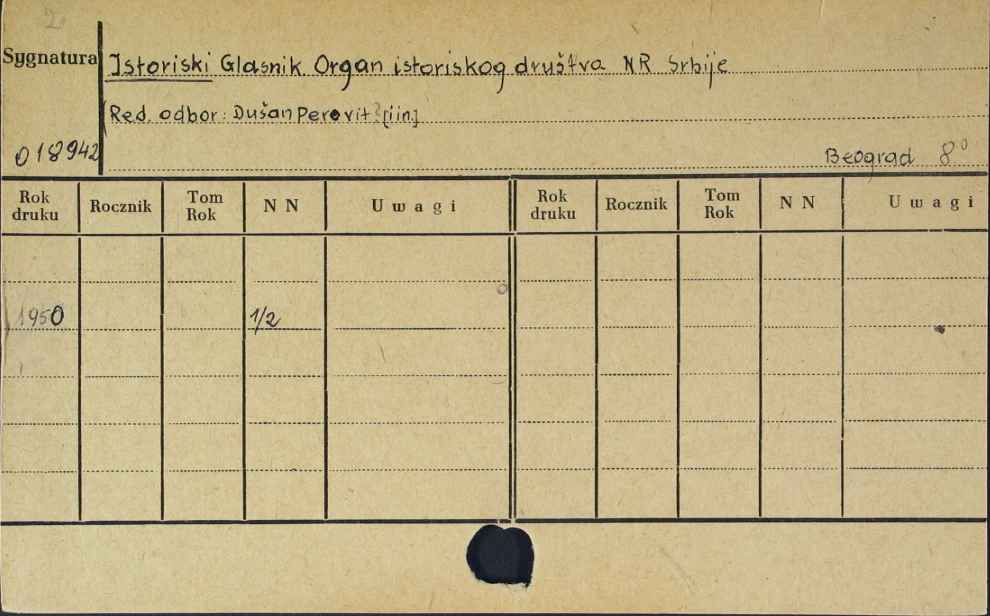 2
Sygnatura
Istoriski Glasnik. Organ istoriskog društva NR Srbije
Red. odbor: Dušan Perović [i in.]
018942
Beograd 8⁰
Rok druku Rocznik Tom Rok NN Uwagi Rok druku Rocznik Tom Rok NN Uwagi
1950 1/2